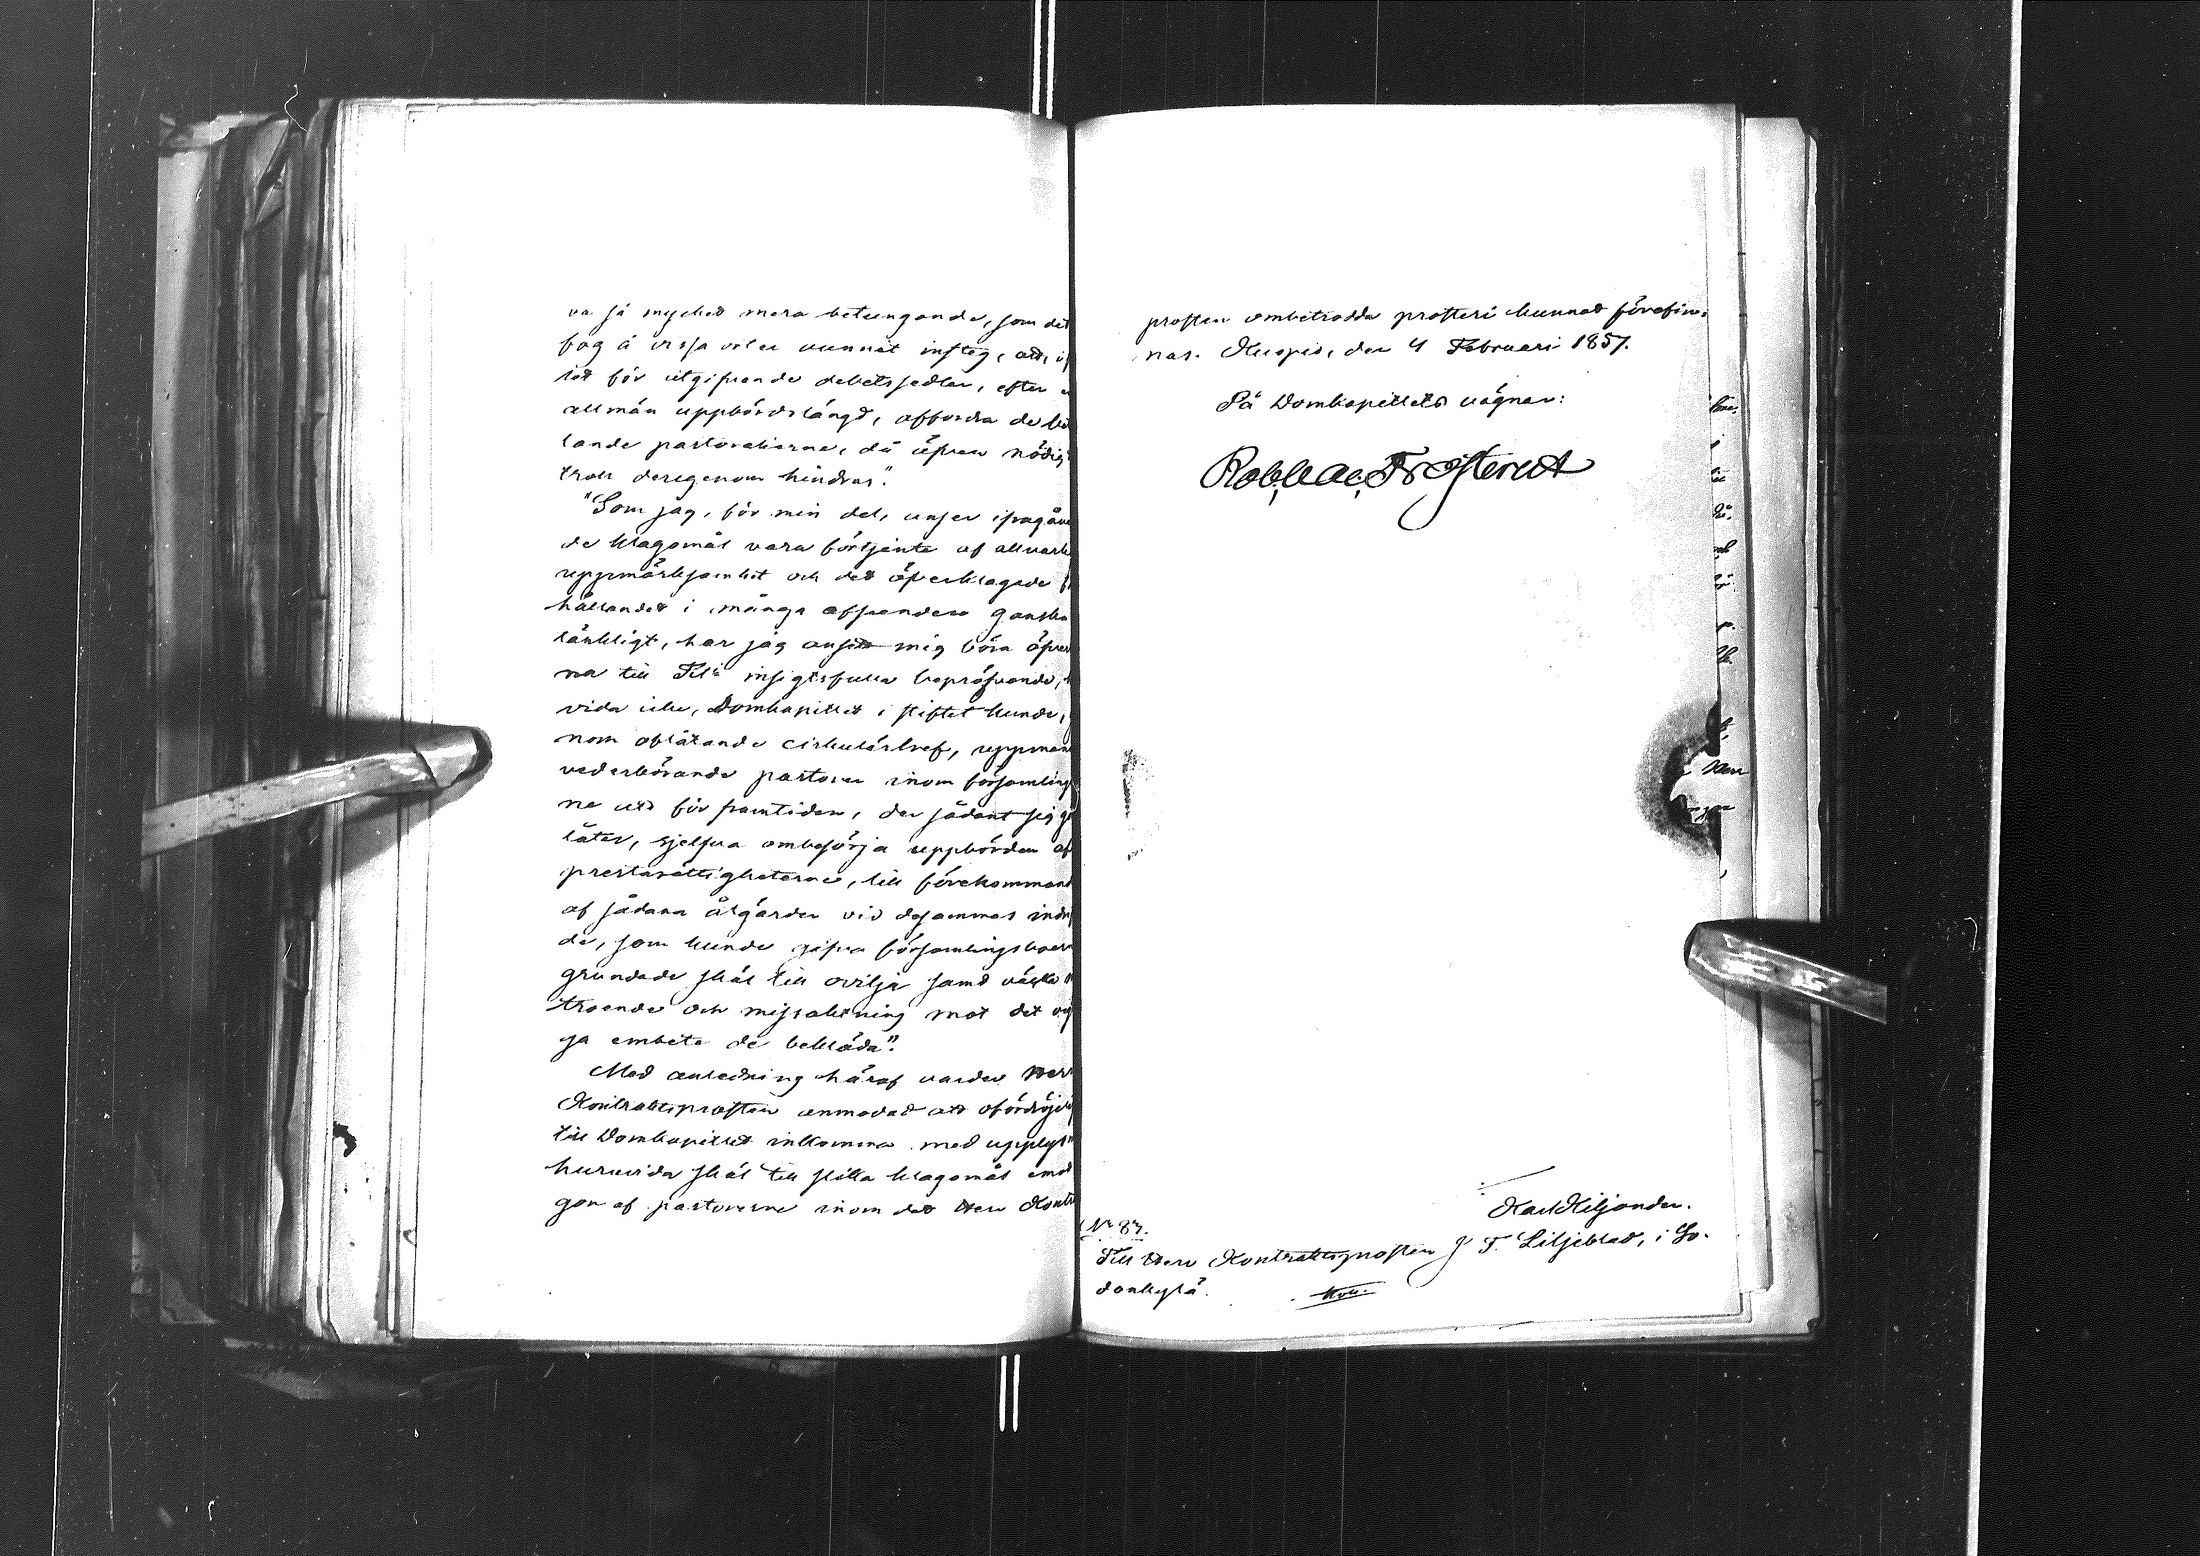 va så mycket mera betungande, som det
bog å vissa orter vunnit insteg, att, i
löt för utgifvande debetssedlar, efter
allmän uppbördslängd, affordra de
lande pastoraterne, då äfven nödig
troll derigenom hindras".
"Som jag, för min del, anser ifrågava
de klagomål vara förtjente af allvarli
uppmärksamhet och det öfverklagade f
hållandet i många afseenden ganska
tänkligt, har jag ansett mig böra öfver
na till insigtsfulla bepröfvande,
vida icke, Domkapitlet i stiftet kunde,
nom aflåtande cirkulärbref, uppman
vederbörande pastorer inom församling
ne att för framtiden, der sådant sig g
låter, sjelfva ombesörja uppbörden af
prestarättigheterne, till förekommand
af sådana åtgärder vid desammas indr
de, som kunde gifva församlingsboer
grundade skäl till ovilja samt väcka
troende och missaktning mot det vig
ga embete de bekläda".
Med anledning häraf varder Herr
Kontraktsprosten anmodad att ofördröjeli
till Domkapitlet inkomma med upplys
huruvida skäl till slika klagomål emot
gon af pastorerne inom det Herr Kontr
prosten anbetrodda prosteri kunnat förefin-
nas. Kuopio, den 4 Februari 1857.
På Domkapitlets vägnar:
Robert Val. Frosterus
Karl Kiljander.
No 87.
Till Herr Kontraktsprosten J F. Liljeblad, i So-
dankylä.